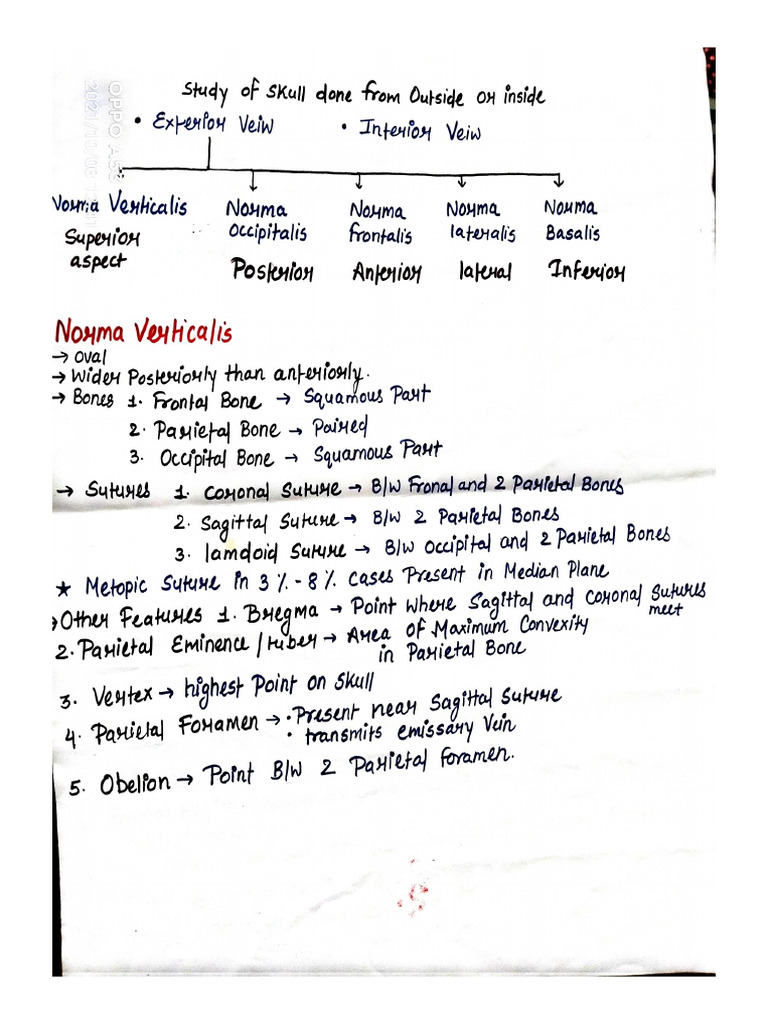 Study of Skull done from Outside or inside
• Exterior Veiw • Interior Veiw
Norma Verticalis Norma Occipitalis Norma frontalis Norma lateralis Norma Basalis
Superior aspect Posterior Anterior lateral Inferior
Norma Verticalis
→ Oval
→ Wider Posteriorly than anteriorly.
→ Bones 1. Frontal Bone → Squamous Part
2. Parietal Bone → Paired
3. Occipital Bone → Squamous Part
→ Sutures 1. Coronal Suture → B/W Fronal and 2 Parietal Bones
2. Sagittal Suture → B/W 2 Parietal Bones
3. lamdoid Suture → B/W Occipital and 2 Parietal Bones
★ Metopic Suture in 3 % - 8 % Cases Present in Median Plane
→ Other Features 1. Bregma → Point where Sagittal and Coronal Sutures meet
2. Parietal Eminence / tuber → Area of Maximum Convexity
in Parietal Bone
3. Vertex → highest Point on Skull
4. Parietal Foramen → • Present near Sagittal Suture
• transmits emissary Vein
5. Obelion → Point B/W 2 Parietal foramen.
OPPO A53